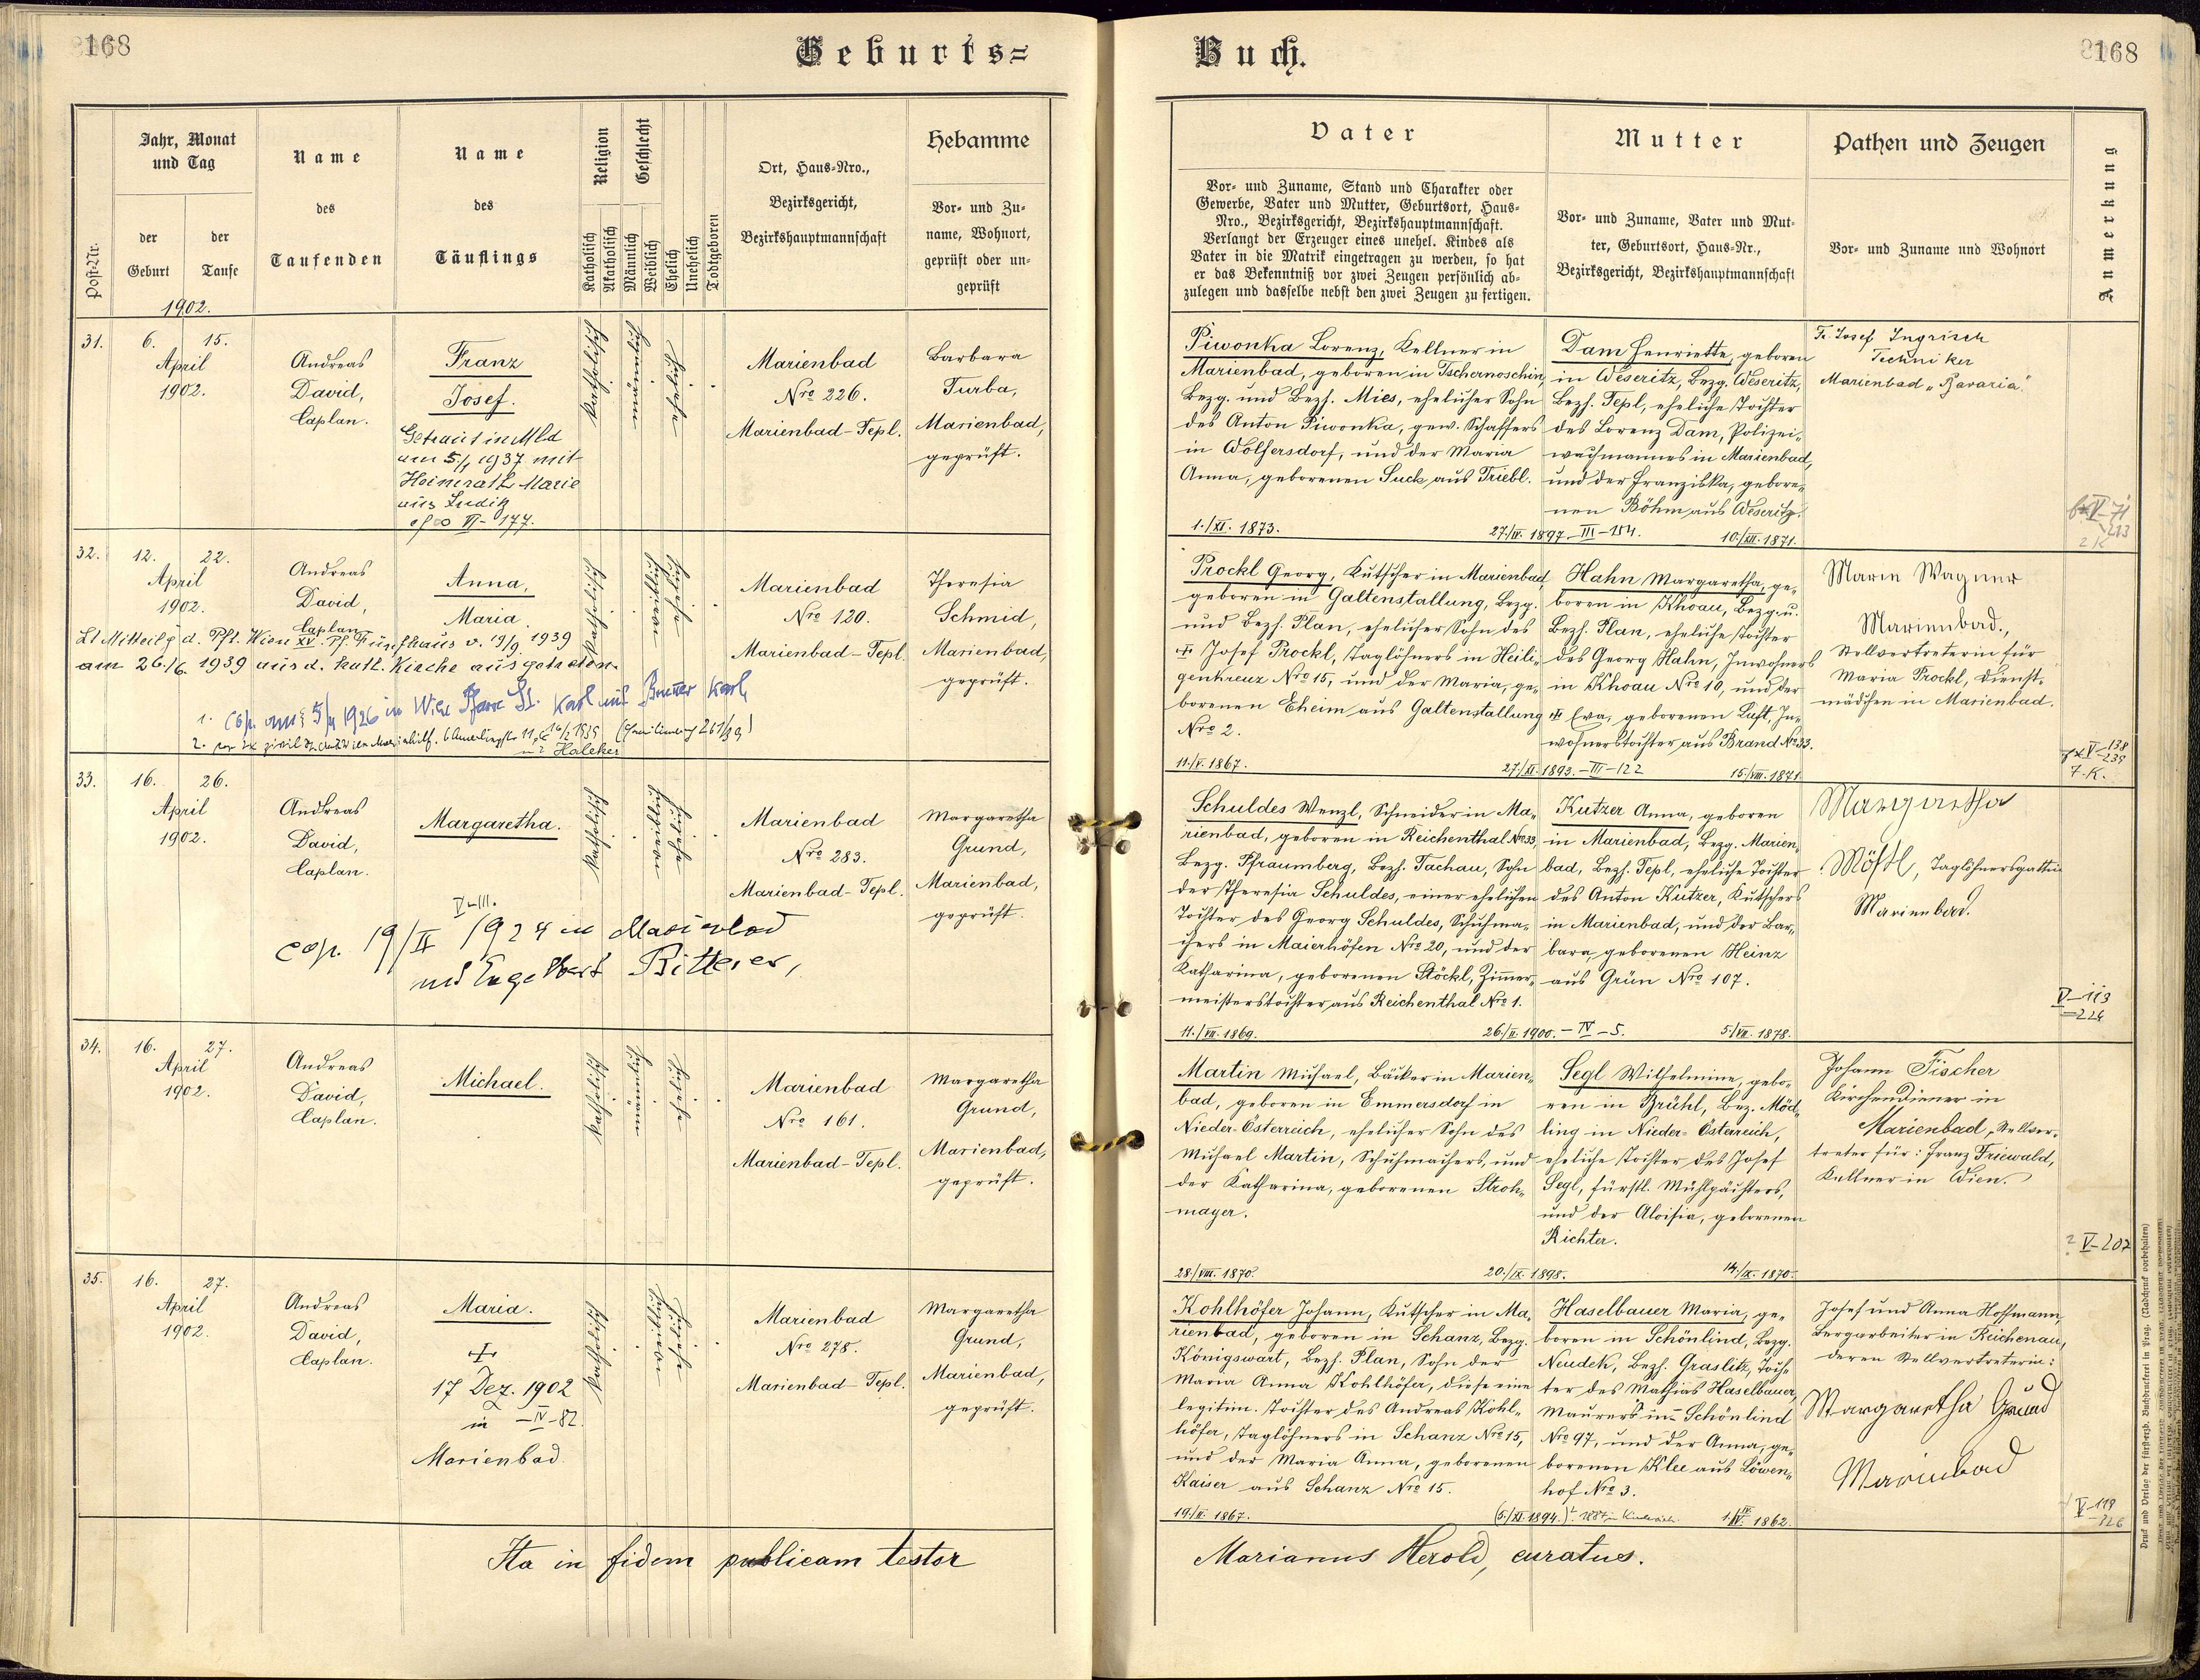 168
Geburts=
Buch.
168
Post-Nr.
Jahr, Monat
und Tag
der
Geburt
der
Taufe
1902.
Name
des
Taufenden
Name
des
Täuflings
Religion
Katholisch
Akatholisch
Geschlecht
Männlich
Weiblich
Ehelich
Unehelich
Todtgeboren
Ort, Haus-Nro.,
Bezirksgericht,
Bezirkshauptmannschaft
Hebamme
Vor- und Zu-
name, Wohnort,
geprüft oder un-
geprüft
Vater
Vor- und Zuname, Stand und Charakter oder
Gewerbe, Vater und Mutter, Geburtsort, Haus-
Nro., Bezirksgericht, Bezirkshauptmannschaft.
Verlangt der Erzeuger eines unehel. Kindes als
Vater in die Matrik eingetragen zu werden, so hat
er das Bekenntniß vor zwei Zeugen persönlich ab-
zulegen und dasselbe nebst den zwei Zeugen zu fertigen.
Mutter
Vor- und Zuname, Vater und Mut-
ter, Geburtsort, Haus-Nr.,
Bezirksgericht, Bezirkshauptmannschaft
Pathen und Zeugen
Vor- und Zuname und Wohnort
Anmerkung
31.
6. 15.
April
1902.
Andreas
David,
Caplan.
Franz
Josef.
Getraut in Mbd
am 5./1 1937 mit
Heinrath Marie
aus Luditz
VI-177.
katholisch
männlich
ehelich
Marienbad
Nro 226.
Marienbad-Tepl.
Barbara
Turba,
Marienbad,
geprüft.
Piwonka Lorenz, Kellner in
Marienbad, geboren in Tschernoschin,
Bezg. und Bezh. Mies, ehelicher Sohn
des Anton Piwonka, gew. Schaffers
in Wolfersdorf, und der Maria
Anna, geborenen Suck aus Triebl.
1./XI. 1873.
Dam Henriette, geboren
in Weseritz, Bezg. Weseritz,
Bezh. Tepl, eheliche Tochter
des Lorenz Dam, Polizei-
wachmannes in Marienbad,
und der Franziska, gebore-
nen Böhm aus Weseritz.
1897. III-184.
10./XII. 1871.
Fr. Josef Ingrisch
Techniker
Marienbad „Bavaria"
32.
12. 22.
April
1902.
Andreas
David,
Caplan
Anna,
Maria.
Lt Mitteilg d. Pft. Wien XV. Pf. Fünfhaus v. 19/9. 1939
am 26./6. 1939 aus d. kath. Kirche ausgetreten.
1. Cop. am 5/4 1926 in Wien Pfarre St. Karl mit Karl
mit Haleker
katholisch
weiblich
ehelich
Marienbad
Nro 120.
Marienbad-Tepl.
Theresia
Schmid,
Marienbad,
geprüft.
Prockl Georg, Kutscher in Marienbad,
geboren in Galtenstallung, Bezg.
und Bezh. Plan, ehelicher Sohn des
Josef Prockl, Taglöhners in Heili-
genkreuz Nro 15, und der Maria, ge-
borenen Eheim aus Galtenstallung
Nro 2.
11./V. 1867.
Hahn Margaretha, ge-
boren in Khoau, Bezg. u.
Bezh. Plan, eheliche Tochter
des Georg Hahn, Inwohners
in Khoau Nro 10, und der
Eva, geborenen Luft, In-
wohnerstochter aus Brand No 33.
27./XI. 1893. – III – 122
15./VIII. 1871.
Marie Wagner
Marienbad.,
Stellvertreterin für
Maria Prockl, Dienst-
mädchen in Marienbad.
V-138
239
7. K.
33.
16. 26.
April
1902.
Andreas
David,
Caplan.
Margaretha.
V-III.
cop. 19/II 1924 in Marienbad
mit Engelbert Bitterer,
katholisch
weiblich
ehelich
Marienbad
Nro 283.
Marienbad-Tepl.
Margaretha
Grund,
Marienbad,
geprüft.
Schuldes Wenzl, Schneider in Ma-
rienbad, geboren in Reichenthal No 33,
Bezg. Pfraumberg, Bezh. Tachau, Sohn
der Theresia Schuldes, einer ehelichen
Tochter des Georg Schuldes, Schuhma-
chers in Maierhöfen Nro 20, und der
Katharina, geborenen Stöckl, Zimmer-
meisterstochter aus Reichenthal Nro 1.
11./VII. 1869.
Kutzer Anna, geboren
in Marienbad, Bezg. Marien-
bad, Bezh. Tepl, eheliche Tochter
des Anton Kutzer, Kutschers
in Marienbad, und der Bar-
bara, geborenen Heinz
aus Grün Nro 107.
26./II. 1900. – IV – 5.
5./VII. 1878.
Margaretha
Möstl, Taglöhnersgattin
Marienbad.
V-113
224
34.
16. 27.
April
1902.
Andreas
David,
Caplan.
Michael.
katholisch
männlich
ehelich
Marienbad
Nro 161.
Marienbad-Tepl.
Margaretha
Grund,
Marienbad,
geprüft.
Martin Michael, Bäcker in Marien-
bad, geboren in Emmersdorf in
Nieder-Österreich, ehelicher Sohn des
Michael Martin, Schuhmachers, und
der Katharina, geborenen Stroh-
mayer.
28./VIII. 1870.
Segl Wilhelmine, gebo-
ren in Brühl, Bez. Möd-
ling in Nieder-Österreich,
eheliche Tochter des Josef
Segl, fürstl. Mühlpächters,
und der Aloisia, geborenen
Richter.
20./IX. 1898.
14./IX. 1870.
Johann Fischer
Kirchendiener in
Marienbad, Stellver-
treter für: Franz Friewald,
Kellner in Wien.
V-207
35.
16. 27.
April
1902.
Andreas
David,
Caplan.
Maria.
17 Dez. 1902
in – IV – 82.
Marienbad
katholisch
weiblich
ehelich
Marienbad
Nro 278.
Marienbad-Tepl.
Margaretha
Grund,
Marienbad,
geprüft.
Kohlhöfer Johann, Kutscher in Ma-
rienbad, geboren in Schanz, Bezg.
Königswart, Bezh. Plan, Sohn der
Maria Anna Kohlhöfer, diese eine
legitim. Tochter des Andreas Kohl-
höfer, Taglöhners in Schanz Nro 15,
und der Maria Anna, geborenen
Kaiser aus Schanz Nro 15.
1867.
Haselbauer Maria, ge-
boren in Schönlind, Bezg.
Neudek, Bezh. Graslitz, Toch-
ter des Mathias Haselbauer,
Maurers in Schönlind
Nro 97, und der Anna, ge-
borenen Klee aus Löwen-
hof Nro 3.
(5./XI. 1894.)
1./IV. 1862.
Josef und Anna Hoffmann,
Bergarbeiter in Reichenau,
deren Stellvertreterin:
Margaretha Grund
Marienbad
V-119
Ita in fidem publicam testor
Marianus Herold, curatus.
Druck und Verlag der fürsterzb. Buchdruckerei in Prag. (Nachdruck vorbehalten)